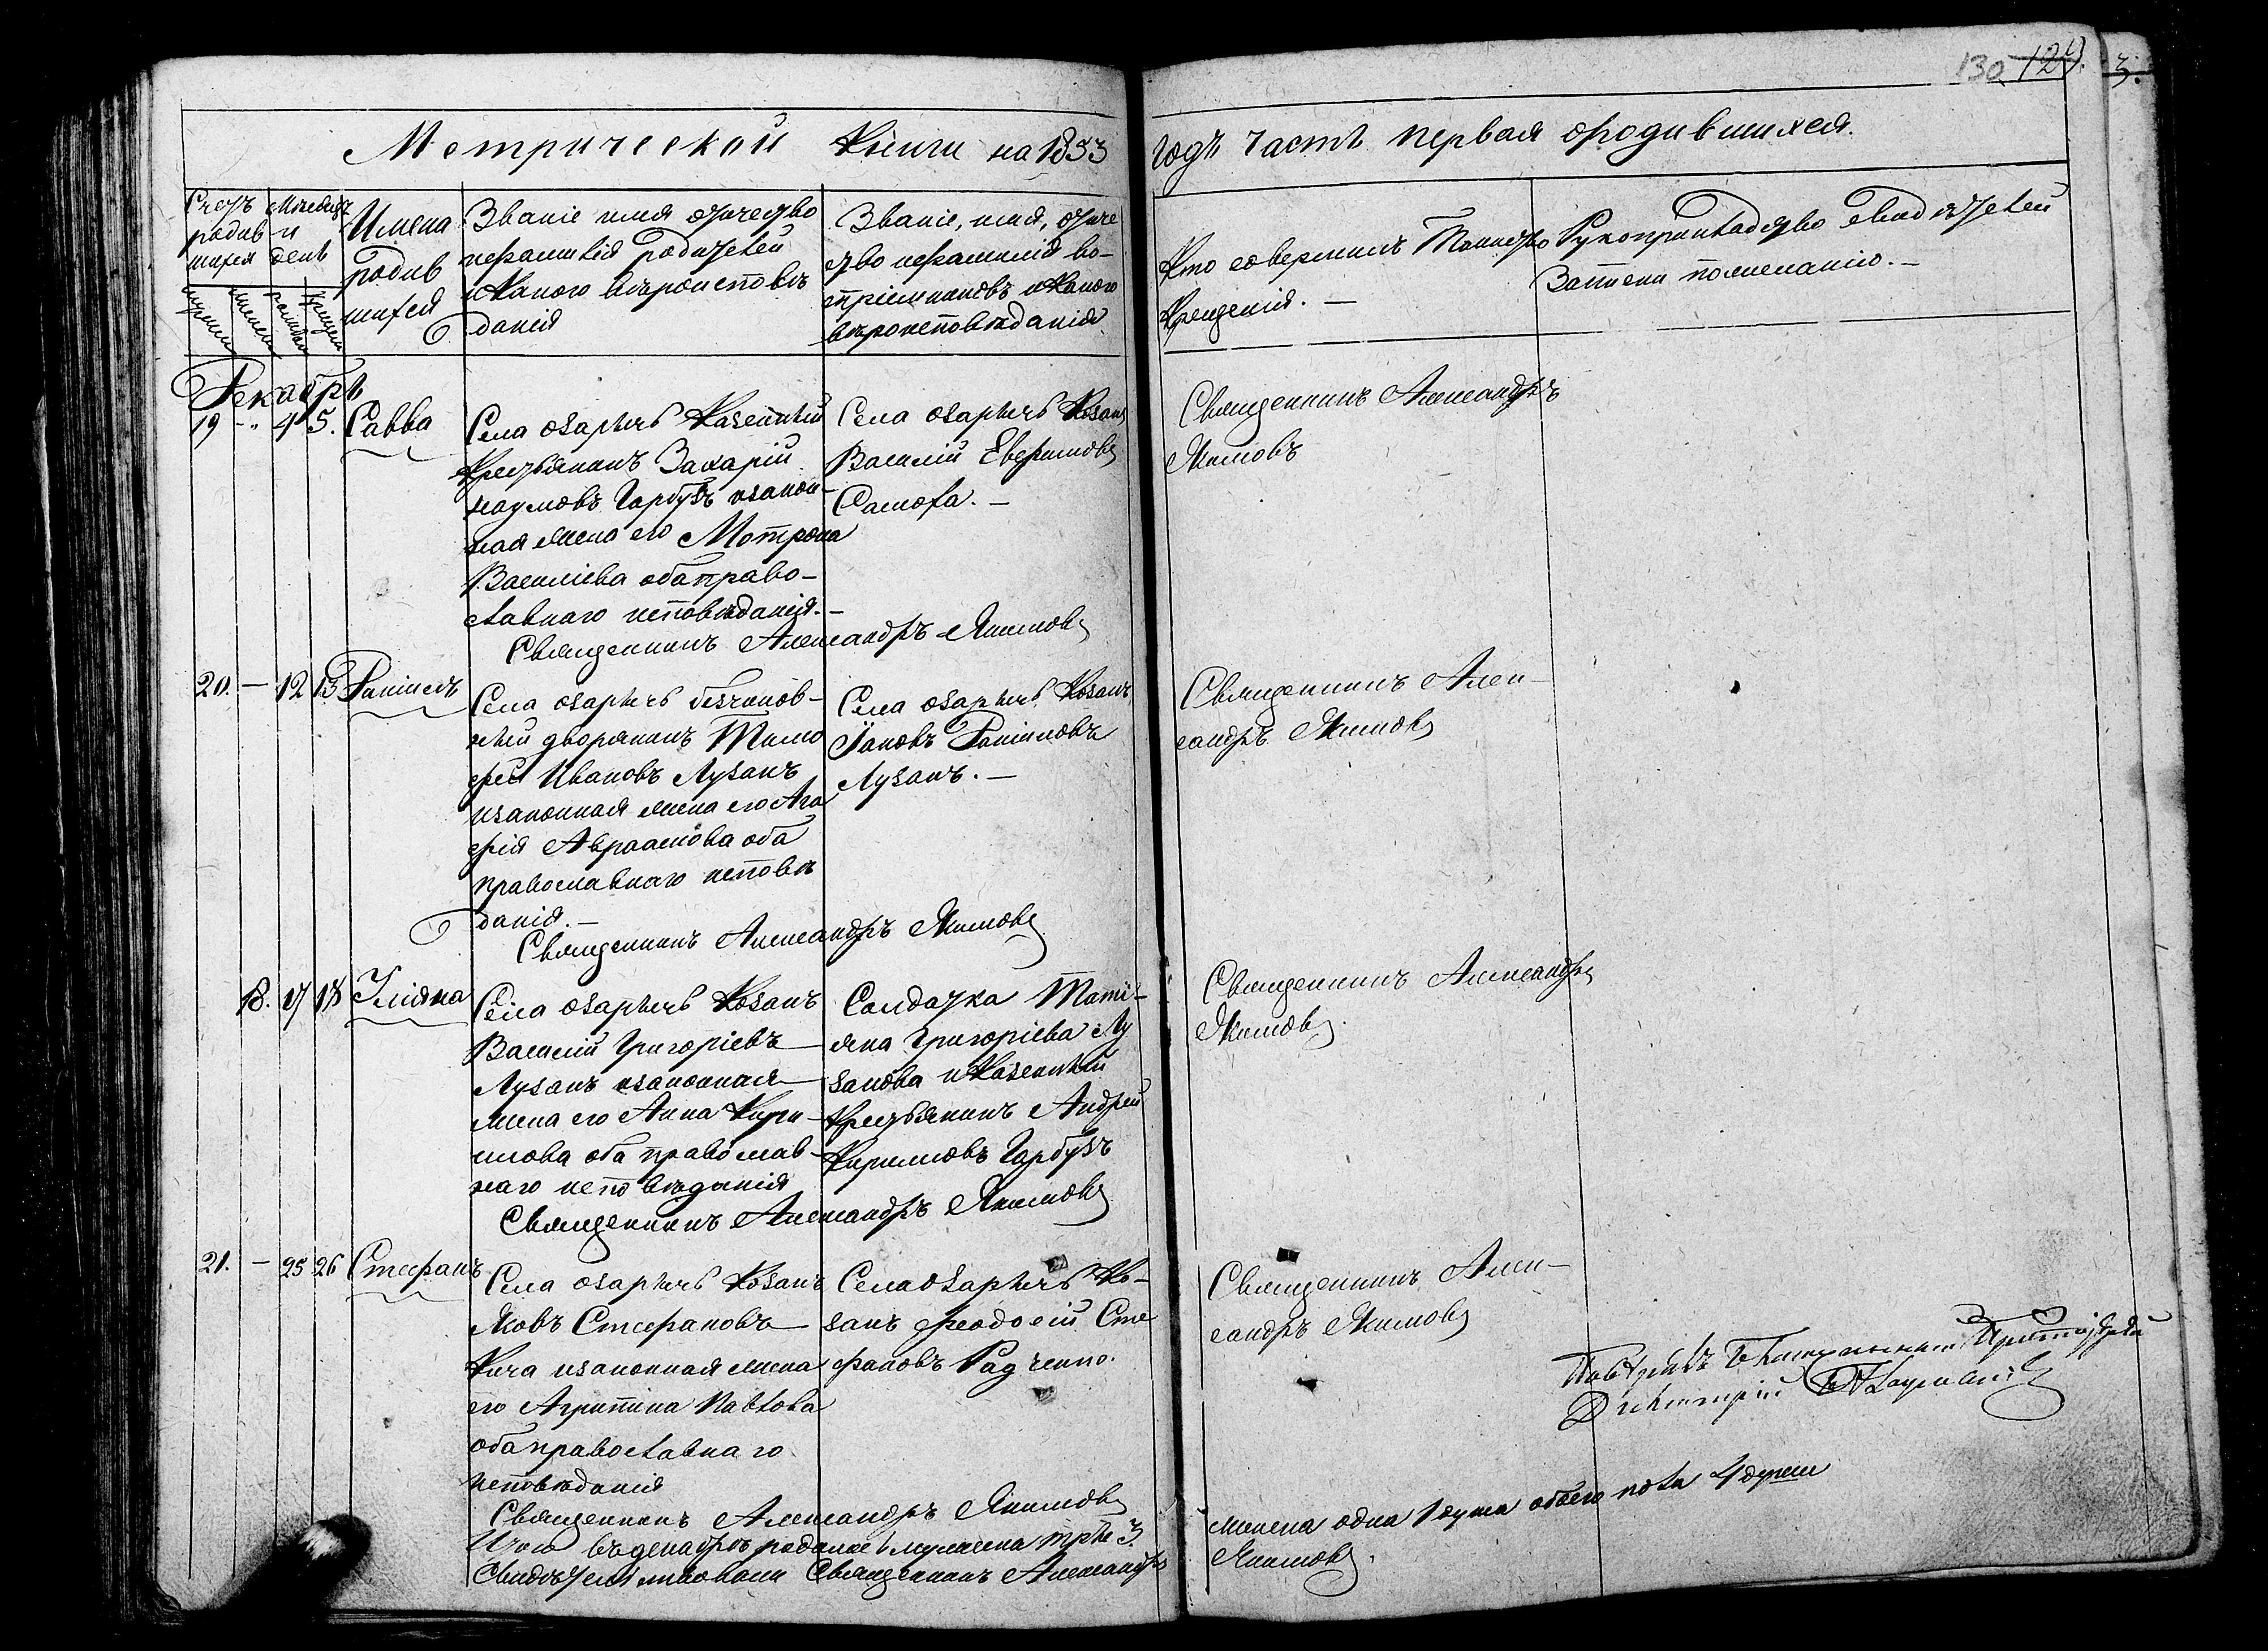 130 129.
3.
Метрической Книги на 1853 годъ часть первая ородившихся.
Счетъ родившихся
Мѣсяцъ и день
Имена родившихся
Званіе имя отчество
ифамилія Родителей
икакого вѣроисповѣ
данія
Званіе, имя, отче
ство ифамилія во-
спріемниковъ икакого
вѣроисповѣданія
Кто совершилъ Таинство
Крещенія. —
Рукоприкладство свидѣтелей
Записи пожеланію. —
мужеска
женска
рожденія
крещенія
Декабрь
19 -„ 4 5. Савва
Села Озаричь Казенный
Крестьянинъ Захарій
наумовъ Гарбузъ изакон-
ная жена его Мотрона
Василіева оба право-
славнаго исповѣданія. —
Села Озаричь Козакъ
Василій Евфимовъ
Самота. —
Священникъ Александръ
Якимовъ
Священникъ Александръ Якимовъ
20. — 12 13 Даніилъ
Села Озаричь безчинов-
ный дворянинъ Тимо
фей Ивановъ Лузанъ
изаконная жена его Ага
фія Авраамова оба
православнаго исповѣ
данія. —
Села Озаричь Козакъ
Іаковъ Даніиловъ
Лузанъ. —
Священникъ Алек-
сандръ Якимовъ
Священникъ Александръ Якимовъ
18. 17 18 Уліяна
Села Озаричь Козакъ
Василій Григоріевъ
Лузанъ изаконная
жена его Анна Кири-
лова оба православ-
наго исповѣданія
Солдатка Таті-
яна Григоріева Лу
занова иКазенный
Крестьянинъ Андрей
Кириловъ Гарбузъ
Священникъ Александръ
Якимовъ.
Священникъ Александръ Якимовъ
21. — 25 26 Стефанъ
Села Озаричь Козакъ
Яковъ Стефановъ
Кича изаконная жена
его Агрипина Павлова
оба православнаго
исповѣданія
Села Озаричь Ко-
закъ Феодосій Сте
фановъ Радченко.
Священникъ Алек-
сандръ Якимовъ
Священникъ Александръ Якимовъ
Димитрій
Итого въ декабрѣ родилось мужеска три 3. женска одна 1 душа обоего пола 4 души
Свидѣтельствовали Священникъ Александръ Якимовъ.